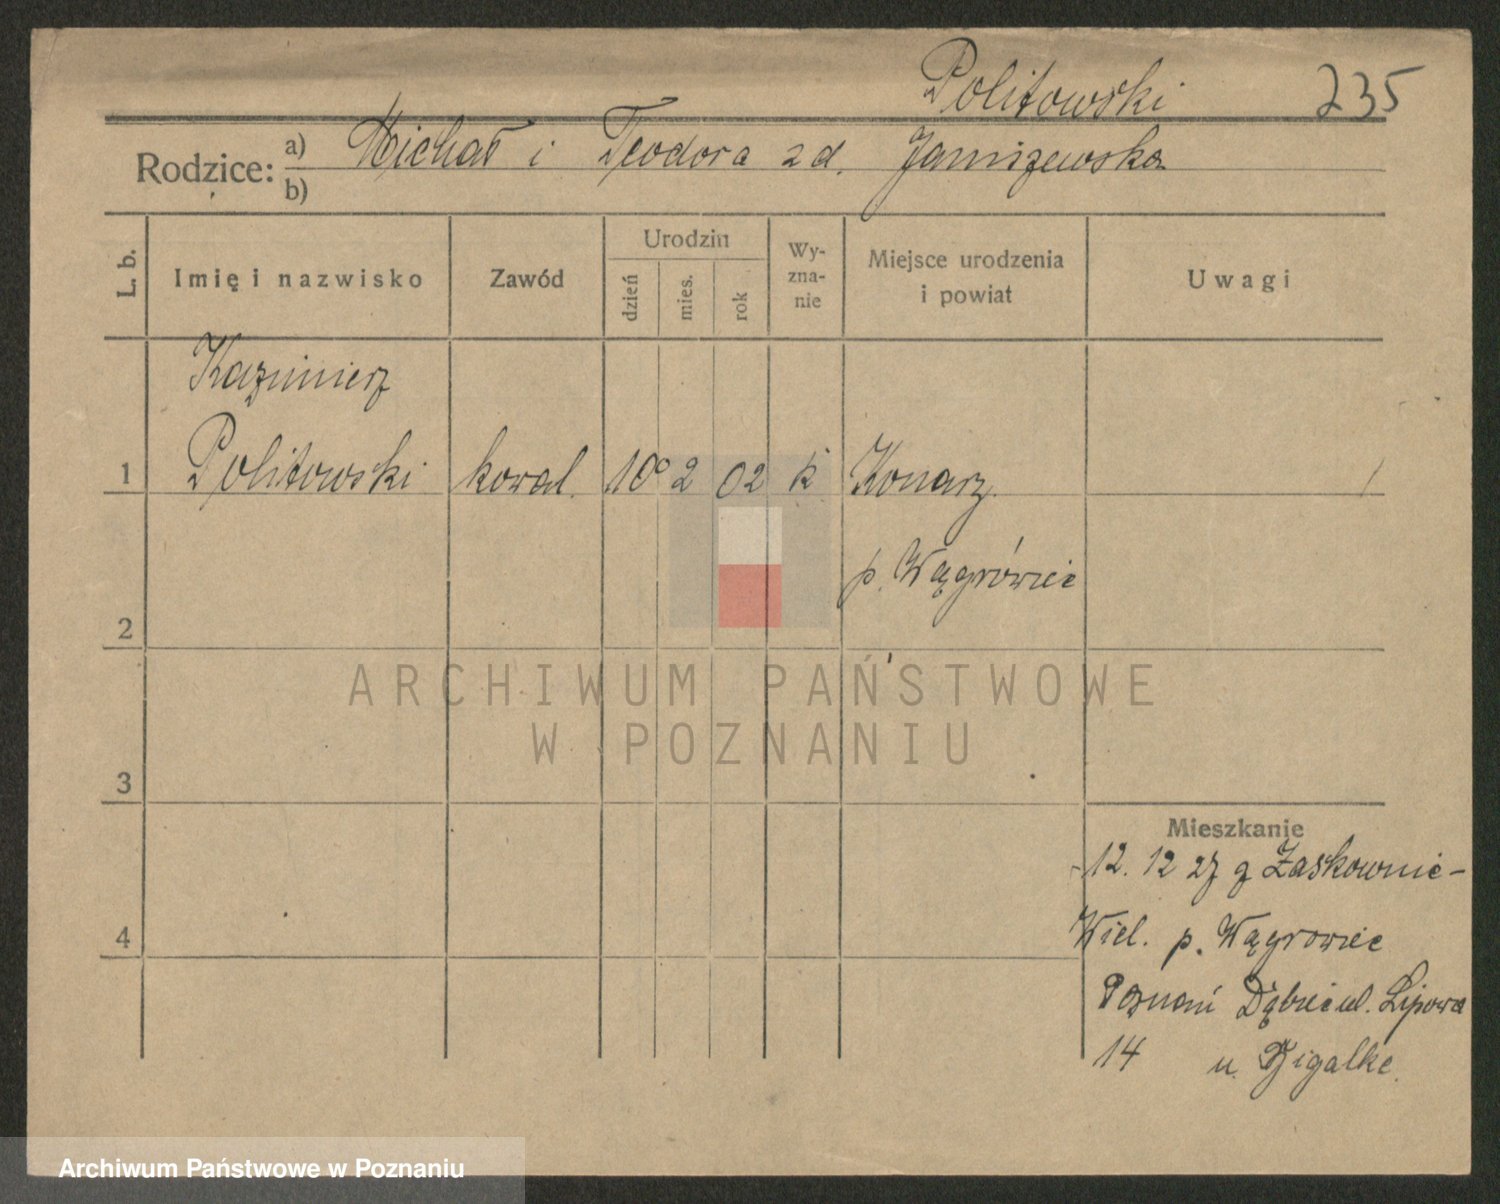 Politowski 235
Rodzice: a) Michał i Teodora zd. Janiszewska
b)
L. b. Imię i nazwisko Zawód Urodzin dzień mies. rok Wy-zna-nie Miejsce urodzenia i powiat Uwagi
Kazimierz
1 Politowski kowal. 10 2 02 k Konarz.
p. Wągrówiec
2
ARCHIWUM PAŃSTWOWE
W POZNANIU
3
Mieszkanie
12. 12 27 z Laskownic-
Wiel. p. Wągrowiec
4
Poznań Dąbiec ul. Lipowa
14 u
Archiwum Państwowe w Poznaniu